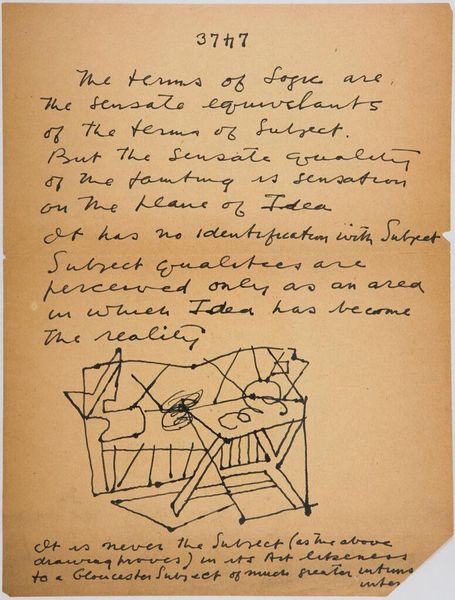 3747
The terms of Logic are
the sensate equivelants
of the terms of Subject.
But the Sensate quality
of the Painting is Sensation
on the Plane of Idea
It has no identification with Subject
Subject qualities are
perceived only as an area
in which Idea has become
the reality
It is never the Subject (as the above
drawing proves) in its Art likeness
to a Gloucester Subject of much greater